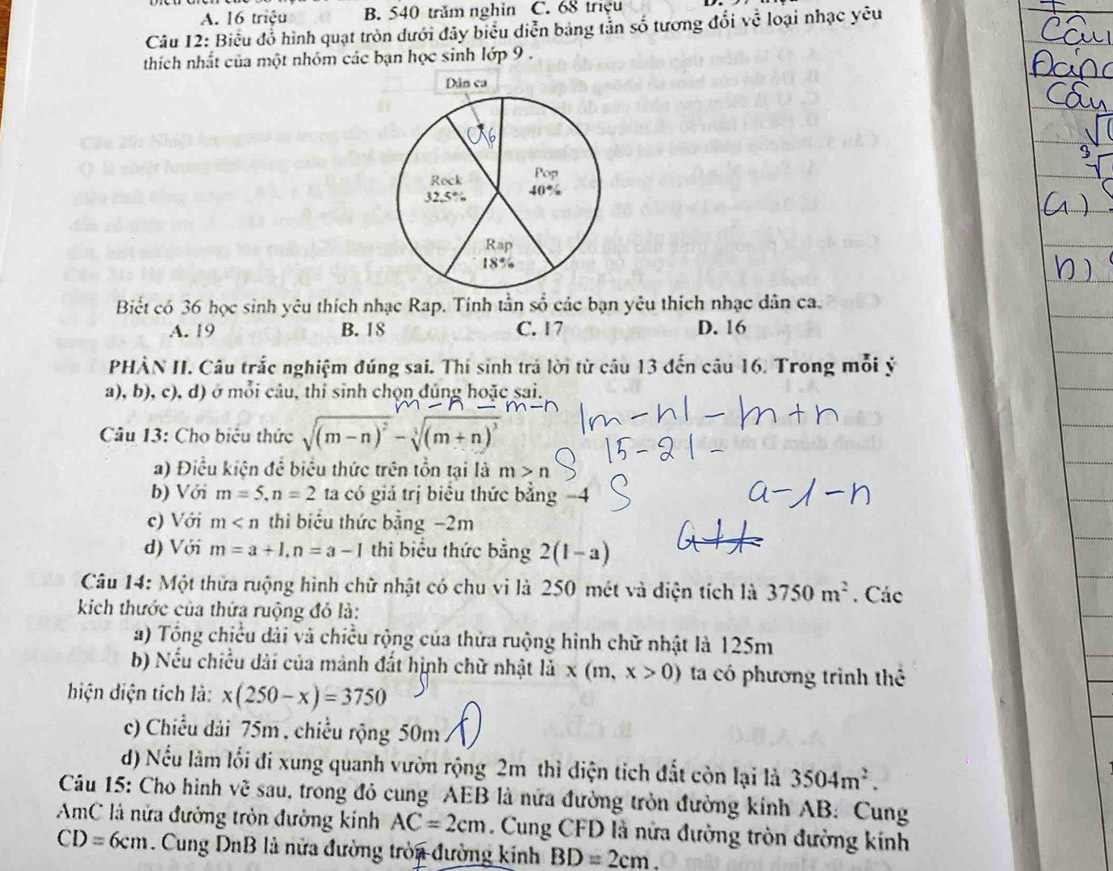 A. 16 triệu B. 540 trăm nghìn C. 68 triệu
Câu 12: Biểu đồ hình quạt tròn dưới đây biểu diễn bảng tần số tương đối về loại nhạc yêu
thích nhất của một nhóm các bạn học sinh lớp 9 .
Dân ca
Rock
32,5%
Pop
40%
Rap
18%
Biết có 36 học sinh yêu thích nhạc Rap. Tính tần số các bạn yêu thích nhạc dân ca.
A. 19 B. 18 C. 17 D. 16
PHẦN II. Câu trắc nghiệm đúng sai. Thí sinh trả lời từ câu 13 đến câu 16. Trong mỗi ý
a), b), c), d) ở mỗi câu, thí sinh chọn đúng hoặc sai.
m - n - m - n
|m - n| - m + n
Câu 13: Cho biểu thức √(m − n)² − ∛(m + n)³
|5 - 2| -
a) Điều kiện để biểu thức trên tồn tại là m > n S
b) Với m = 5, n = 2 ta có giá trị biểu thức bằng −4 S
a - 1 - n
c) Với m < n thì biểu thức bằng −2m
d) Với m = a + 1, n = a − 1 thì biểu thức bằng 2(1 − a)
Câu 14: Một thửa ruộng hình chữ nhật có chu vi là 250 mét và diện tích là 3750 m². Các
kích thước của thửa ruộng đó là:
a) Tổng chiều dài và chiều rộng của thửa ruộng hình chữ nhật là 125m
b) Nếu chiều dài của mảnh đất hình chữ nhật là x (m, x > 0) ta có phương trình thể
hiện diện tích là: x(250 − x) = 3750 S
c) Chiều dài 75m, chiều rộng 50m
d) Nếu làm lối đi xung quanh vườn rộng 2m thì diện tích đất còn lại là 3504m².
Câu 15: Cho hình vẽ sau, trong đó cung AEB là nửa đường tròn đường kính AB. Cung
AmC là nửa đường tròn đường kính AC = 2cm. Cung CFD là nửa đường tròn đường kính
CD = 6cm. Cung DnB là nửa đường tròn đường kính BD = 2cm.
Câu
Đáp
Câu
a)